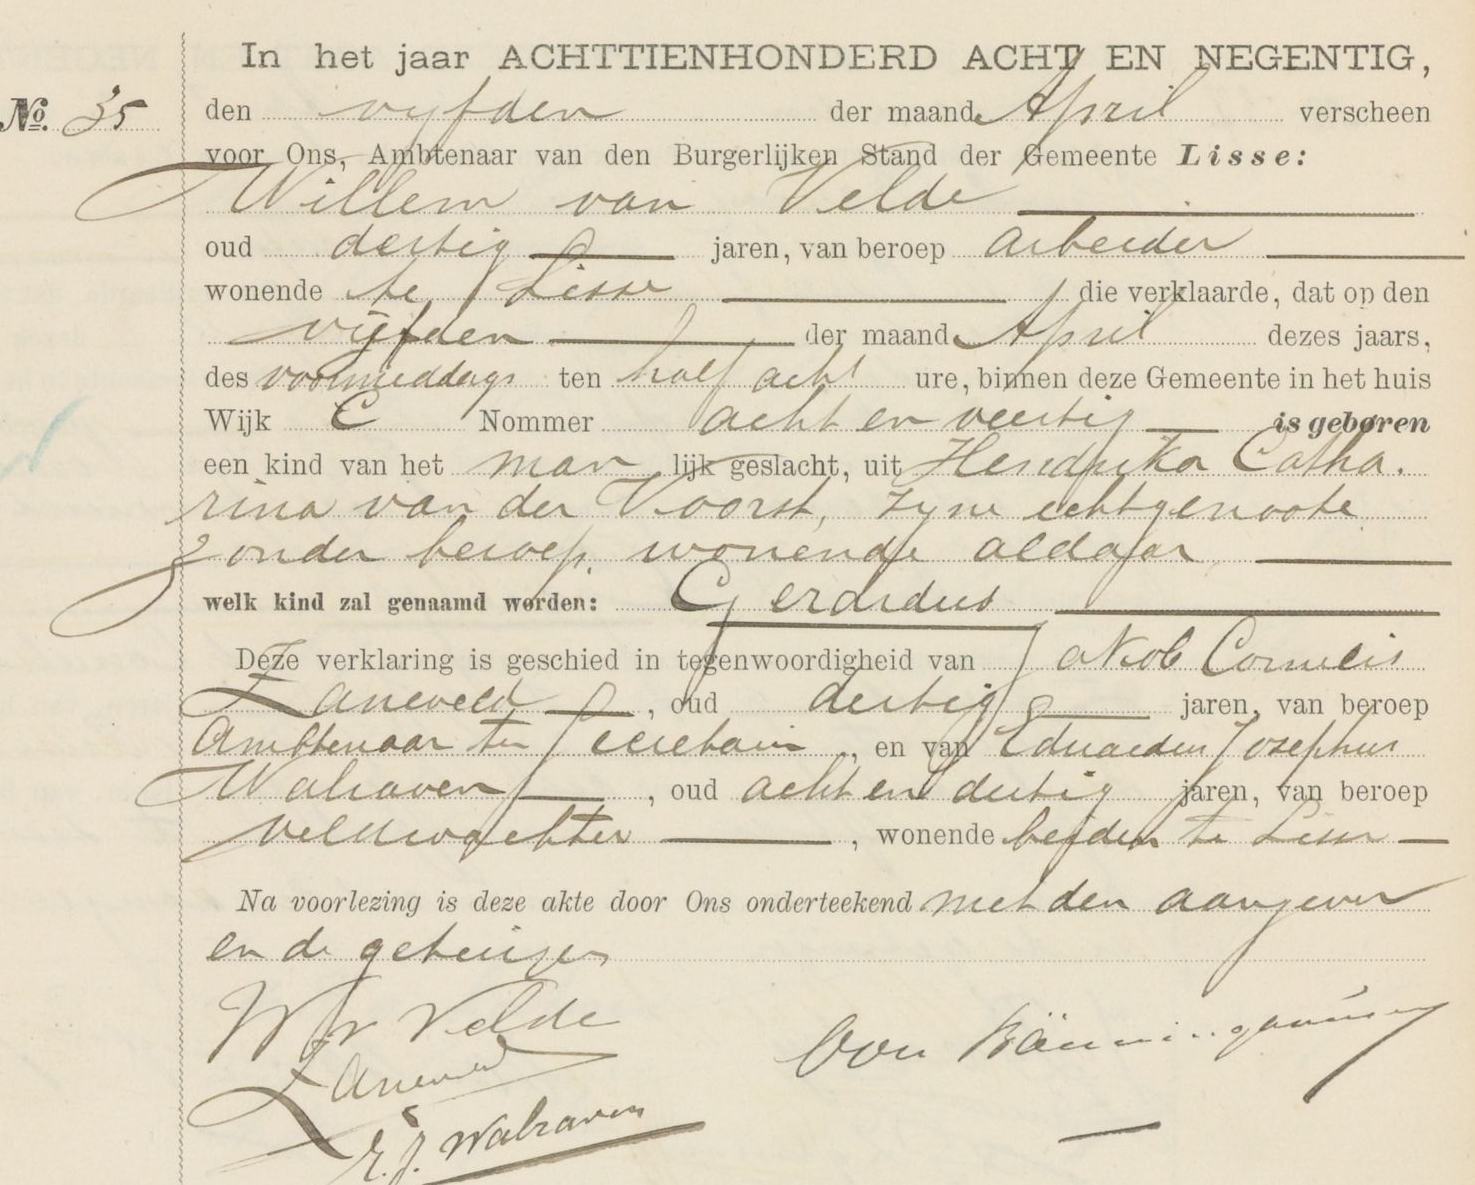 In het jaar ACHTTIENHONDERD ACHT EN NEGENTIG,
No. 35 den vyfden der maand April verscheen
voor Ons, Ambtenaar van den Burgerlijken Stand der Gemeente Lisse:
Willem van Velde
oud dertig jaren, van beroep arbeider
wonende te Lisse die verklaarde, dat op den
vijfden der maand April dezes jaars,
des voormiddags ten half acht ure, binnen deze Gemeente in het huis
Wijk C Nommer acht en veertig is geboren
een kind van het man lijk geslacht, uit Hendrika Catha.
rina van der Voorst, zyne echtgenoote
zonder beroep, wonende aldaar
welk kind zal genaamd worden: Gerardus
Deze verklaring is geschied in tegenwoordigheid van Jakob Cornelis
Zaneveld, oud dertig jaren, van beroep
Ambtenaar ter Secretarie, en van Eduardus Josephus
Walraven, oud acht en dertig jaren, van beroep
veldwachter, wonende beiden te Lisse
Na voorlezing is deze akte door Ons onderteekend met den aangever
en de getuigen
W v Velde
Zaneveld
E. J. Walraven
Von